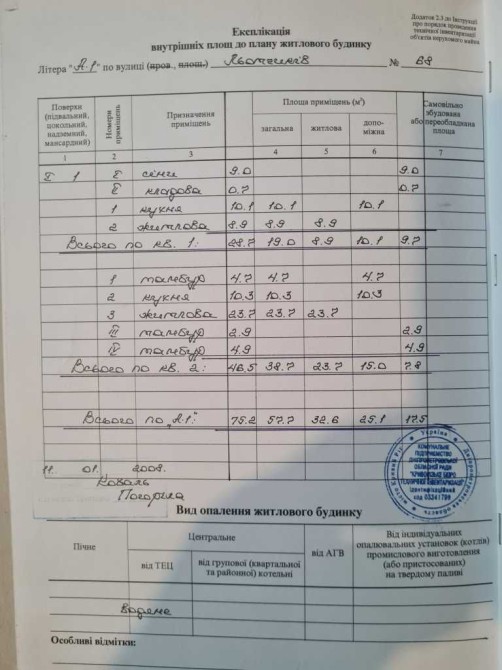 Додаток 2.3 до Інструкції
про порядок проведення
технічної інвентаризації
об'єктів нерухомого майна
Експлікація
внутрішніх площ до плану житлового будинку
Літера "А-1" по вулиці (пров., площ.) № 68
Поверхи (підвальний, цокольний, надземний, мансардний) Номери приміщень Призначення приміщень Площа приміщень (м²) загальна житлова допоміжна Самовільно збудована або переобладнана площа
1 2 3 4 5 6 7
I 1 I сіни 9.0 9.0
II кладова 0.7 0.7
1 кухня 10.1 10.1 10.1
2 житлова 8.9 8.9 8.9
Всього по кв. 1: 28.7 19.0 8.9 10.1 9.7
1 тамбур 4.7 4.7 4.7
2 кухня 10.3 10.3 10.3
3 житлова 23.7 23.7 23.7
III тамбур 2.9 2.9
IV тамбур 4.9 4.9
Всього по кв. 2: 46.5 38.7 23.7 15.0 7.8
Всього по "А-1": 75.2 57.7 32.6 25.1 17.5
11. 01. 2008.
Коваль
Україна
КОМУНАЛЬНЕ
ПІДПРИЄМСТВО
ДНІПРОПЕТРОВСЬКОЇ
ОБЛАСНОЇ РАДИ
"КРИВОРІЗЬКЕ БЮРО
ТЕХНІЧНОЇ ІНВЕНТАРИЗАЦІЇ"
ідентифікаційний
код 03341786
Вид опалення житлового будинку
Пічне Центральне від ТЕЦ від групової (квартальної та районної) котельні від АГВ Від індивідуальних опалювальних установок (котлів) промислового виготовлення (або пристосованих) на твердому паливі
водяне
Особливі відмітки: